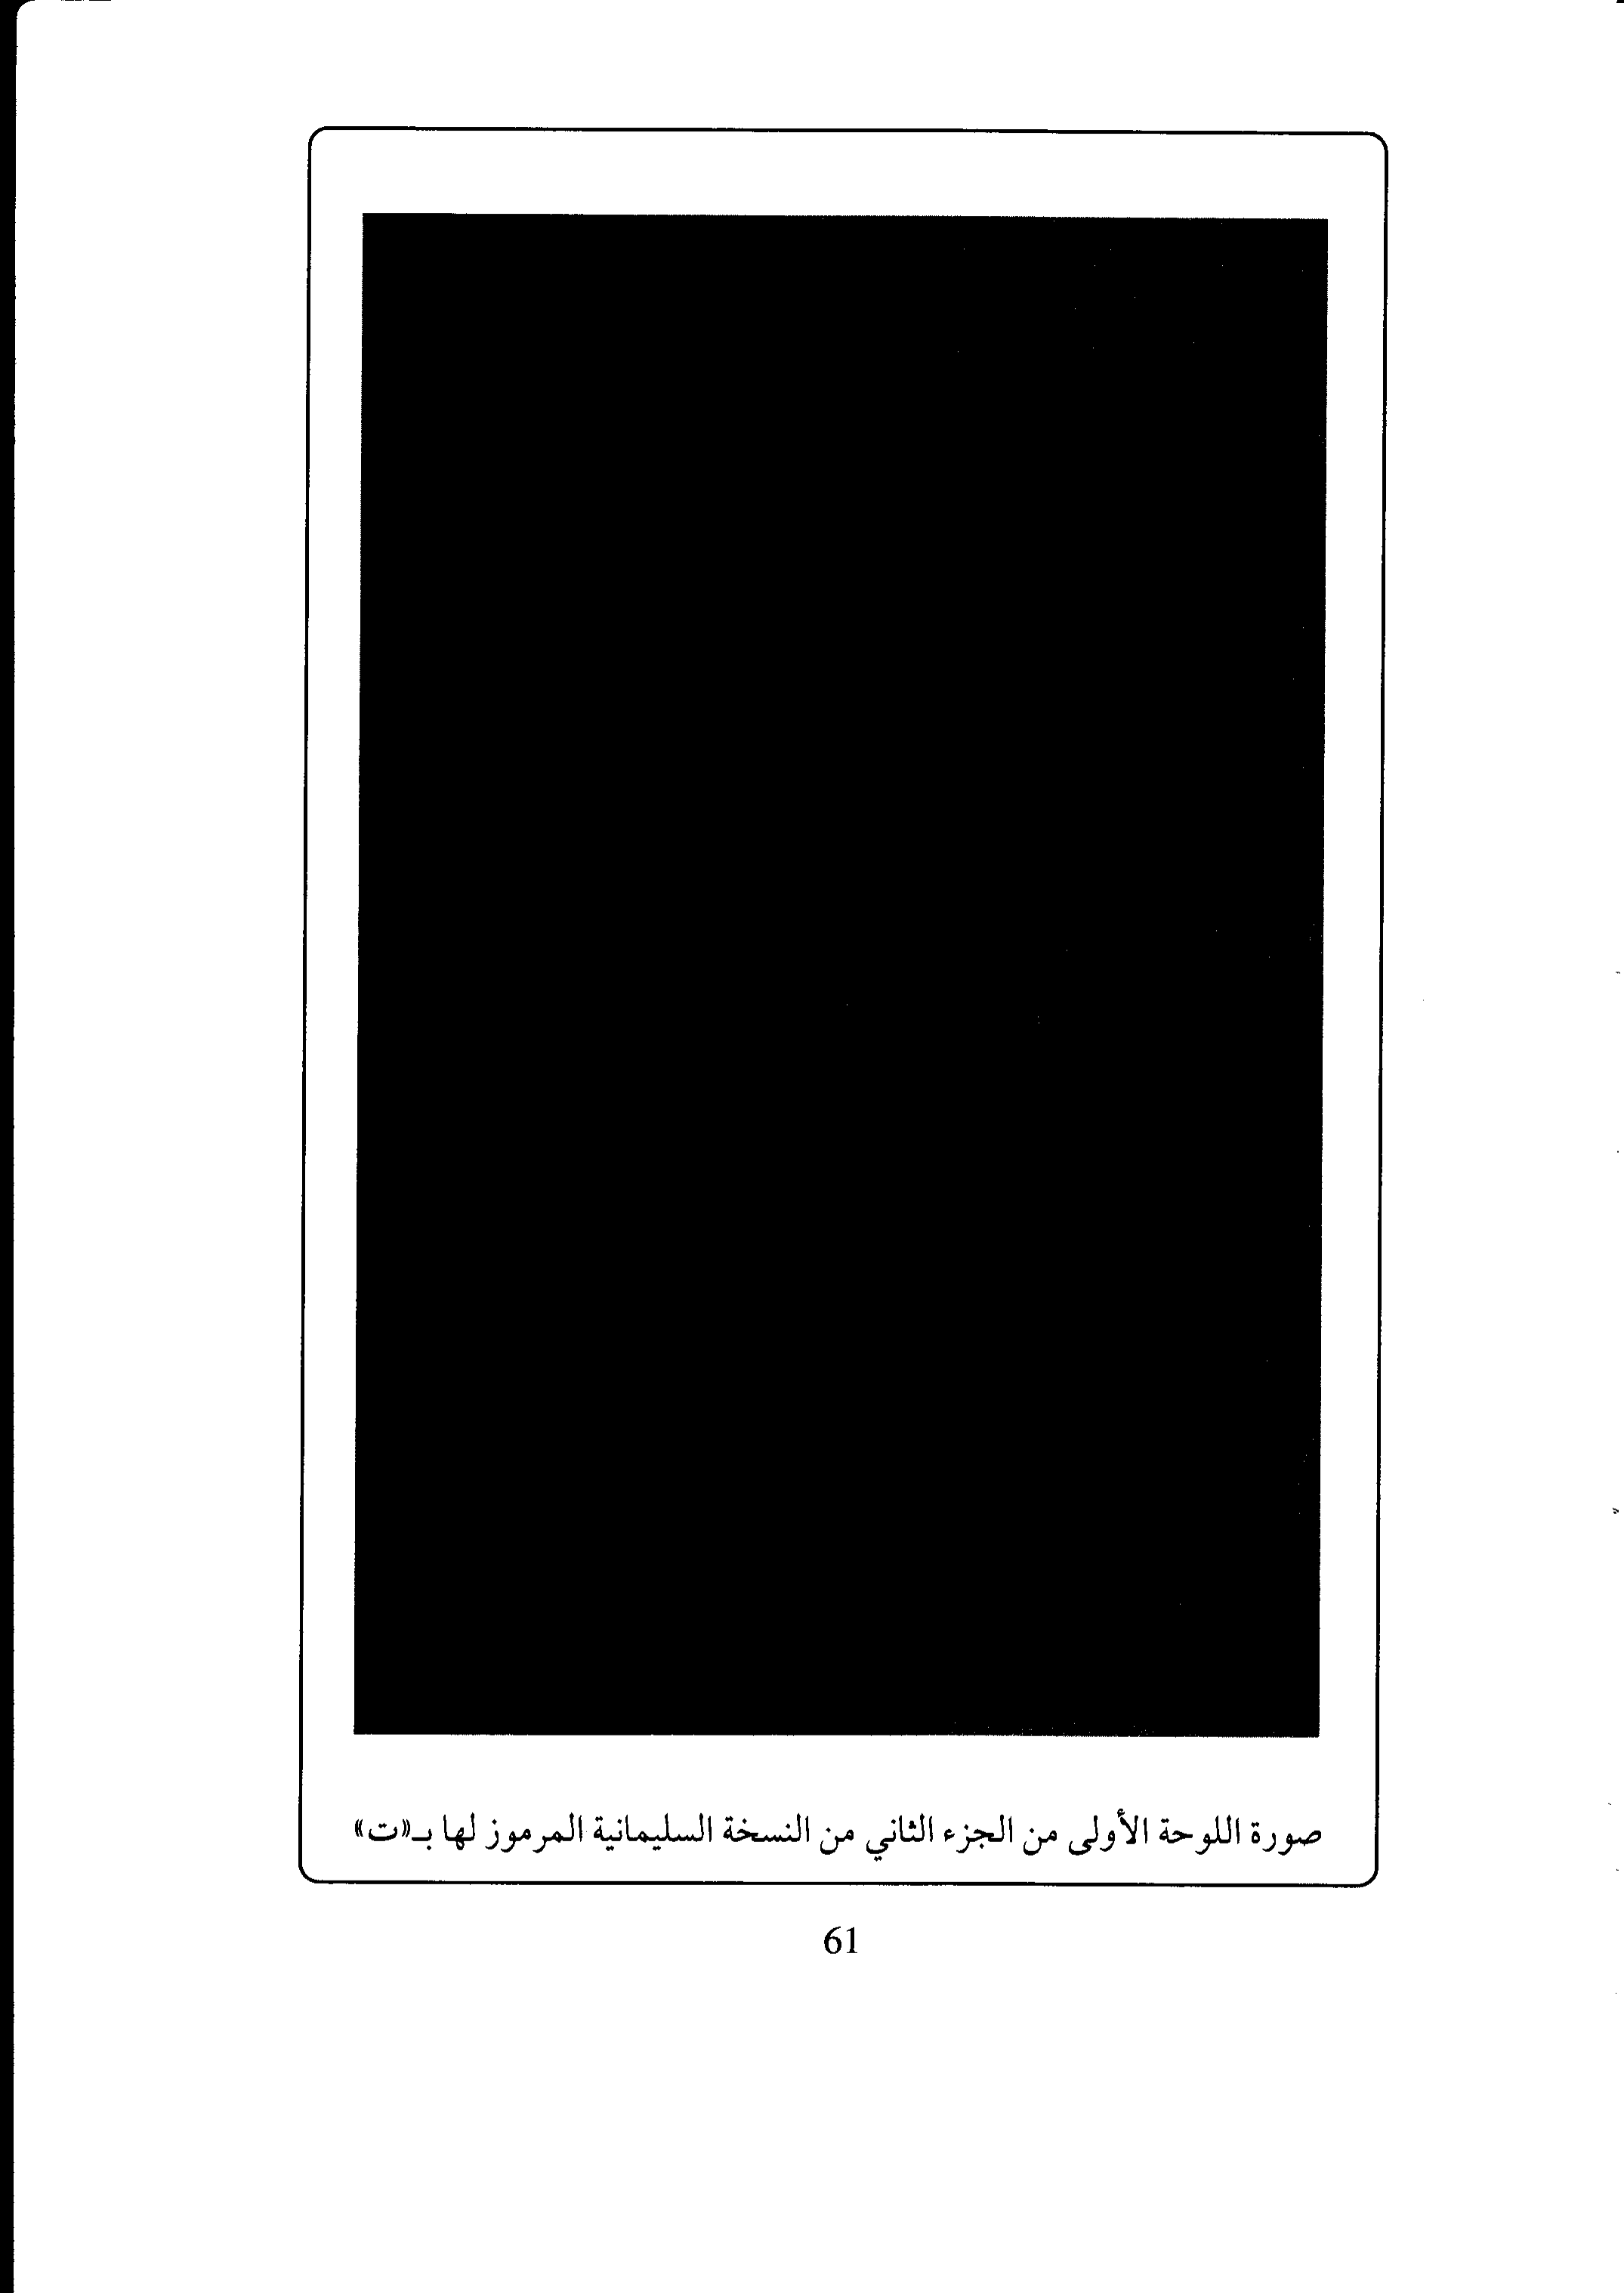 صورة اللوحة الأولى من الجزء الثاني من النسخة السليمانية المرموز لها بـ«ت»
61